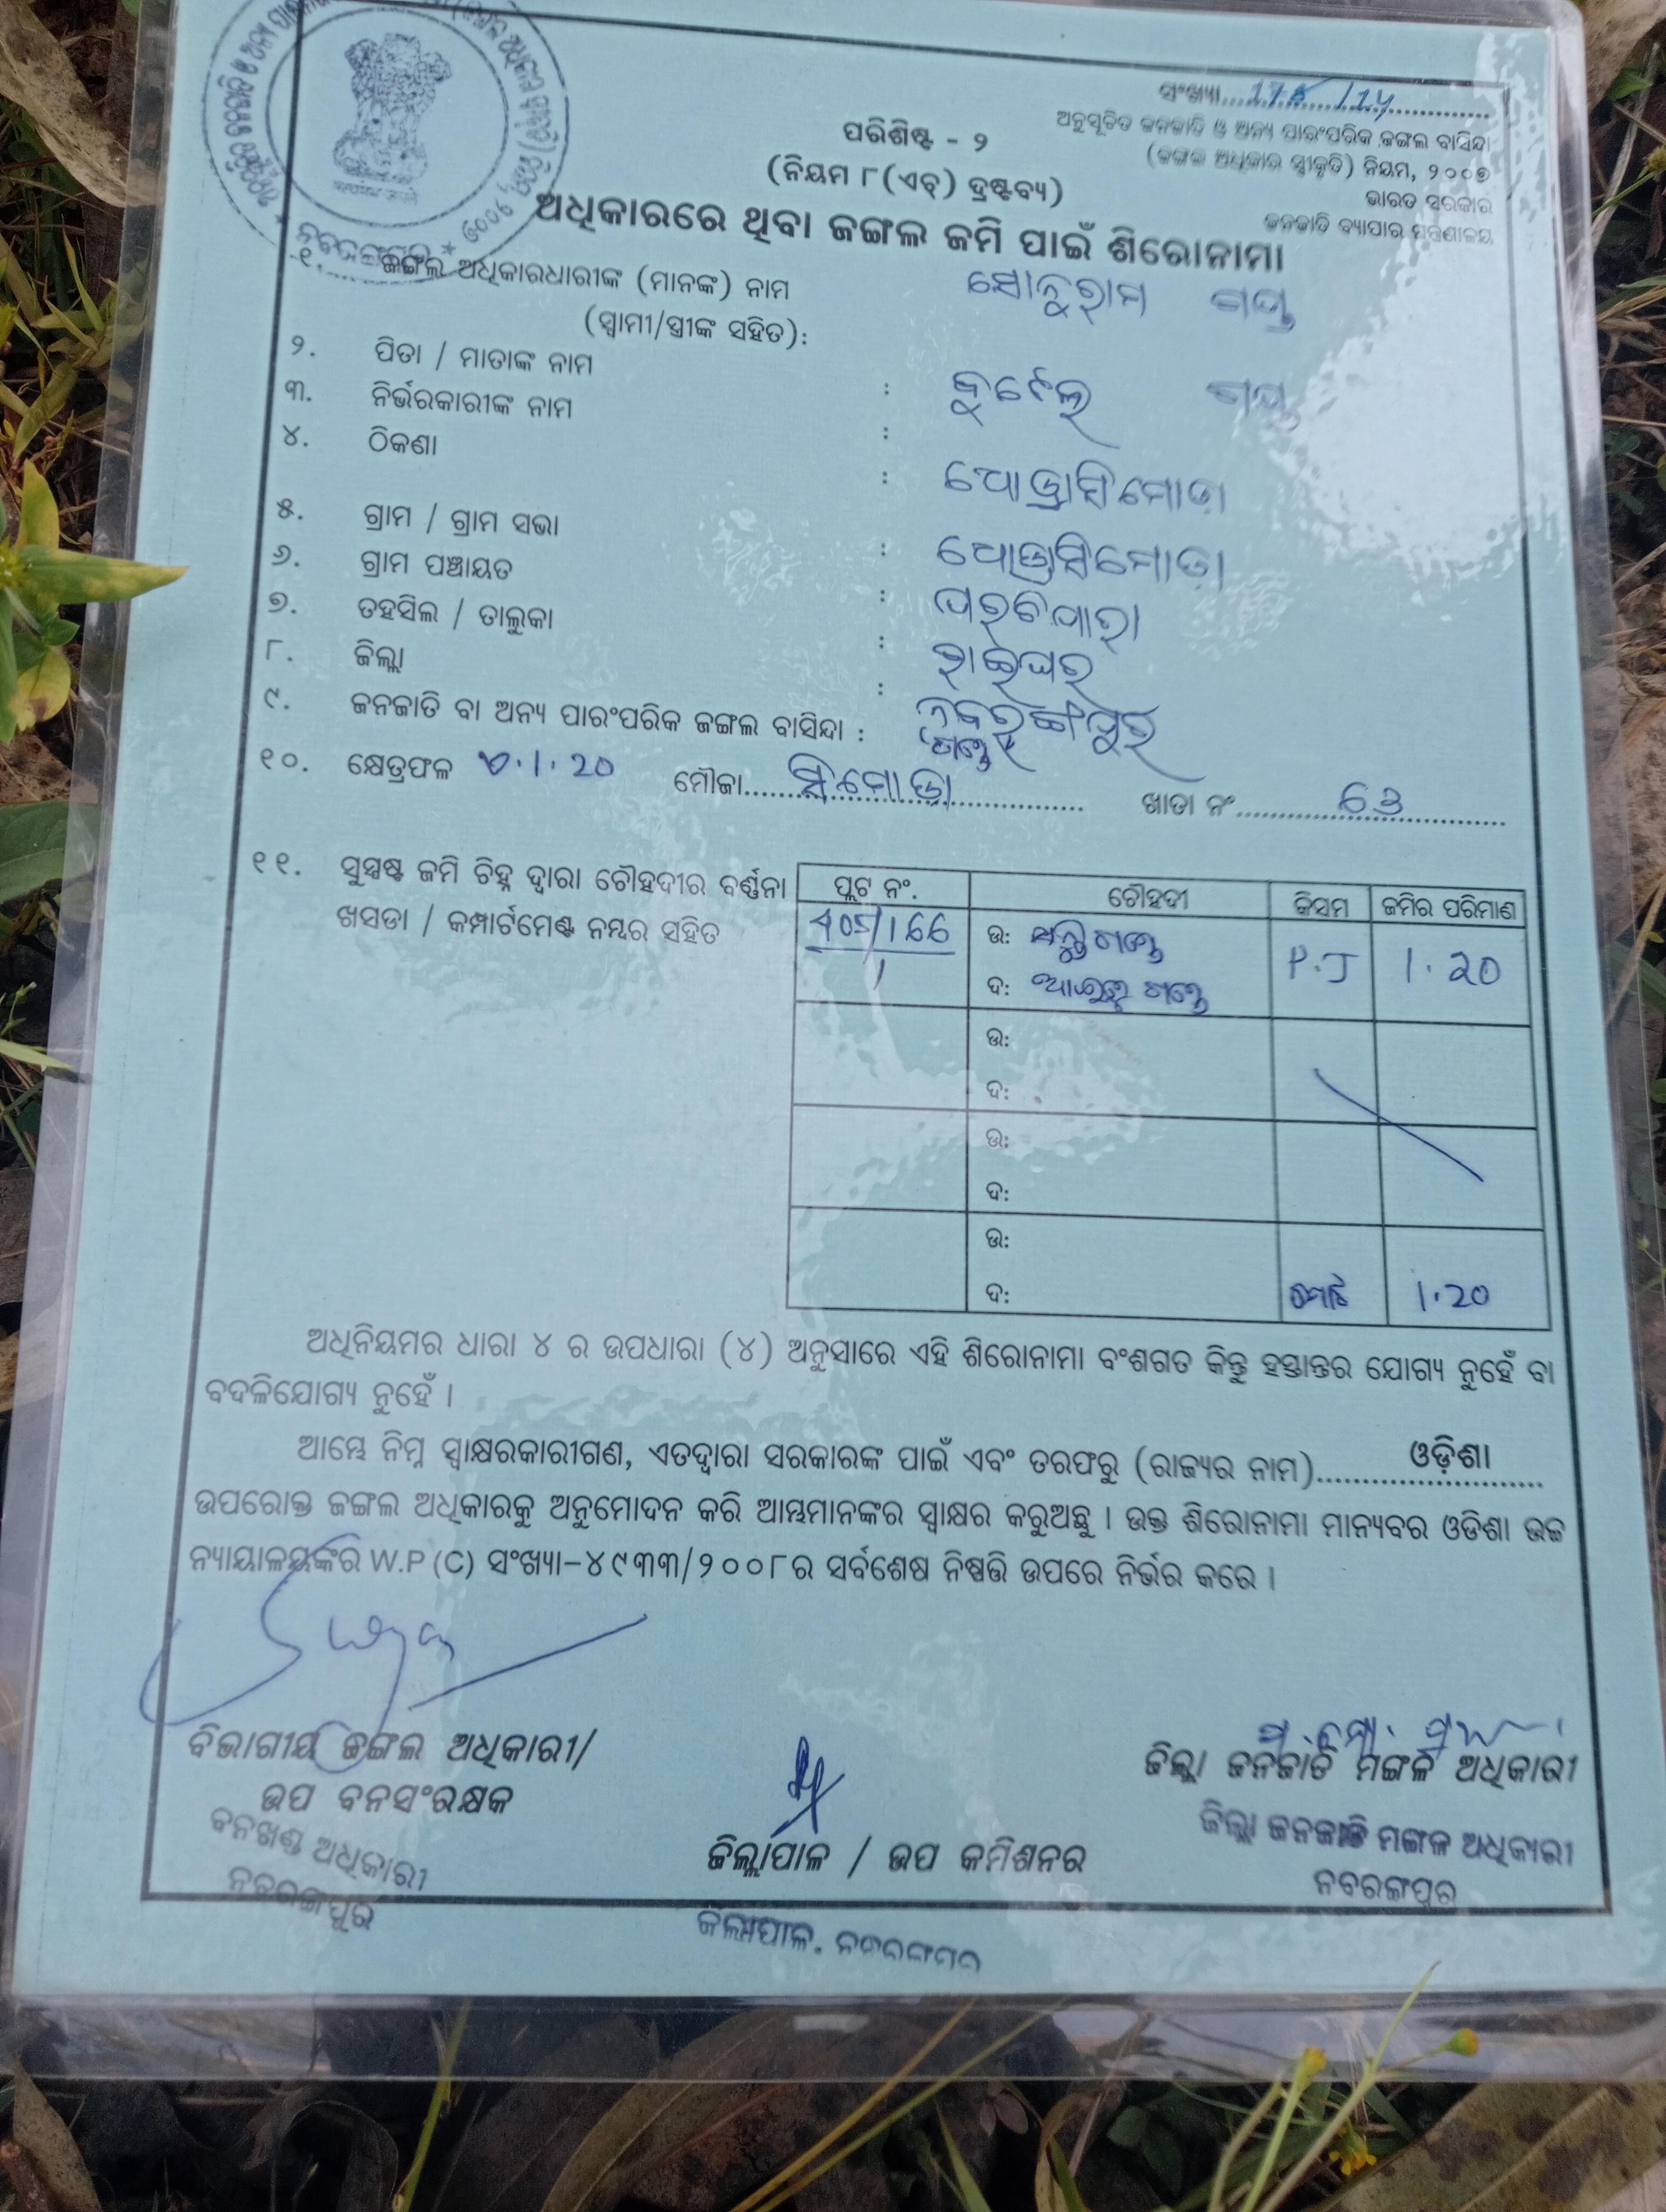 ସଂଖ୍ୟା
ଅନୁସୂଚିତ ଜନଜାତି ଓ ଅନ୍ୟ ପାରଂପରିକ ଜଙ୍ଗଲ ବାସିନ୍ଦା
(ଜଙ୍ଗଲ ଅଧିକାର ସ୍ୱୀକୃତି) ନିୟମ, ୨୦୦୭
ଭାରତ ସରକାର
ଜନଜାତି ବ୍ୟାପାର ମନ୍ତ୍ରଣାଳୟ
ପରିଶିଷ୍ଟ - ୨
(ନିୟମ ୮(ଏଚ୍) ଦ୍ରଷ୍ଟବ୍ୟ)
ଅଧିକାରରେ ଥିବା ଜଙ୍ଗଲ ଜମି ପାଇଁ ଶିରୋନାମା
୧. ଜଙ୍ଗଲ ଅଧିକାରଧାରୀଙ୍କ (ମାନଙ୍କ) ନାମ ସୋନୁରାମ ଗଣ୍ଡ
(ସ୍ୱାମୀ/ସ୍ତ୍ରୀଙ୍କ ସହିତ):
୨. ପିତା / ମାତାଙ୍କ ନାମ : ଗଣ୍ଡ
୩. ନିର୍ଭରକାରୀଙ୍କ ନାମ :
୪. ଠିକଣା :
୫. ଗ୍ରାମ / ଗ୍ରାମ ସଭା :
୬. ଗ୍ରାମ ପଞ୍ଚାୟତ :
୭. ତହସିଲ / ତାଲୁକା : ରାଇଘର
୮. ଜିଲ୍ଲା : ନବରଙ୍ଗପୁର
୯. ଜନଜାତି ବା ଅନ୍ୟ ପାରଂପରିକ ଜଙ୍ଗଲ ବାସିନ୍ଦା : ଗଣ୍ଡ
୧୦. କ୍ଷେତ୍ରଫଳ 1.20 ମୌଜା ଖାତା ନଂ
୧୧. ସୁସ୍ପଷ୍ଟ ଜମି ଚିହ୍ନ ଦ୍ୱାରା ଚୌହଦୀର ବର୍ଣ୍ଣନା
ଖସଡା / କମ୍ପାର୍ଟମେଣ୍ଟ ନମ୍ବର ସହିତ
ପ୍ଲଟ ନଂ. ଚୌହଦୀ କିସମ ଜମିର ପରିମାଣ
ଉ: ଗଣ୍ଡ P.J 1.20
ଦ: ଗଣ୍ଡ
ଉ:
ଦ:
ଉ:
ଦ:
ଉ:
ଦ: ମୋଟ 1.20
ଅଧିନିୟମର ଧାରା ୪ ର ଉପଧାରା (୪) ଅନୁସାରେ ଏହି ଶିରୋନାମା ବଂଶଗତ କିନ୍ତୁ ହସ୍ତାନ୍ତର ଯୋଗ୍ୟ ନୁହେଁ ବା
ବଦଳିଯୋଗ୍ୟ ନୁହେଁ ।
ଆମ୍ଭେ ନିମ୍ନ ସ୍ୱାକ୍ଷରକାରୀଗଣ, ଏତଦ୍ୱାରା ସରକାରଙ୍କ ପାଇଁ ଏବଂ ତରଫରୁ (ରାଜ୍ୟର ନାମ) ଓଡ଼ିଶା
ଉପରୋକ୍ତ ଜଙ୍ଗଲ ଅଧିକାରକୁ ଅନୁମୋଦନ କରି ଆମ୍ଭମାନଙ୍କର ସ୍ୱାକ୍ଷର କରୁଅଛୁ । ଉକ୍ତ ଶିରୋନାମା ମାନ୍ୟବର ଓଡିଶା ଉଚ୍ଚ
ନ୍ୟାୟାଳୟଙ୍କର W.P (C) ସଂଖ୍ୟା-୪୯୩୩/୨୦୦୮ର ସର୍ବଶେଷ ନିଷ୍ପତ୍ତି ଉପରେ ନିର୍ଭର କରେ ।
ବିଭାଗୀୟ ଜଙ୍ଗଲ ଅଧିକାରୀ/
ଉପ ବନସଂରକ୍ଷକ
ବନଖଣ୍ଡ ଅଧିକାରୀ
ନବରଙ୍ଗପୁର
ଜିଲ୍ଲାପାଳ / ଉପ କମିଶନର
ଜିଲ୍ଲାପାଳ, ନବରଙ୍ଗପୁର
ଜିଲ୍ଲା ଜନଜାତି ମଙ୍ଗଳ ଅଧିକାରୀ
ଜିଲ୍ଲା ଜନଜାତି ମଙ୍ଗଳ ଅଧିକାରୀ
ନବରଙ୍ଗପୁର